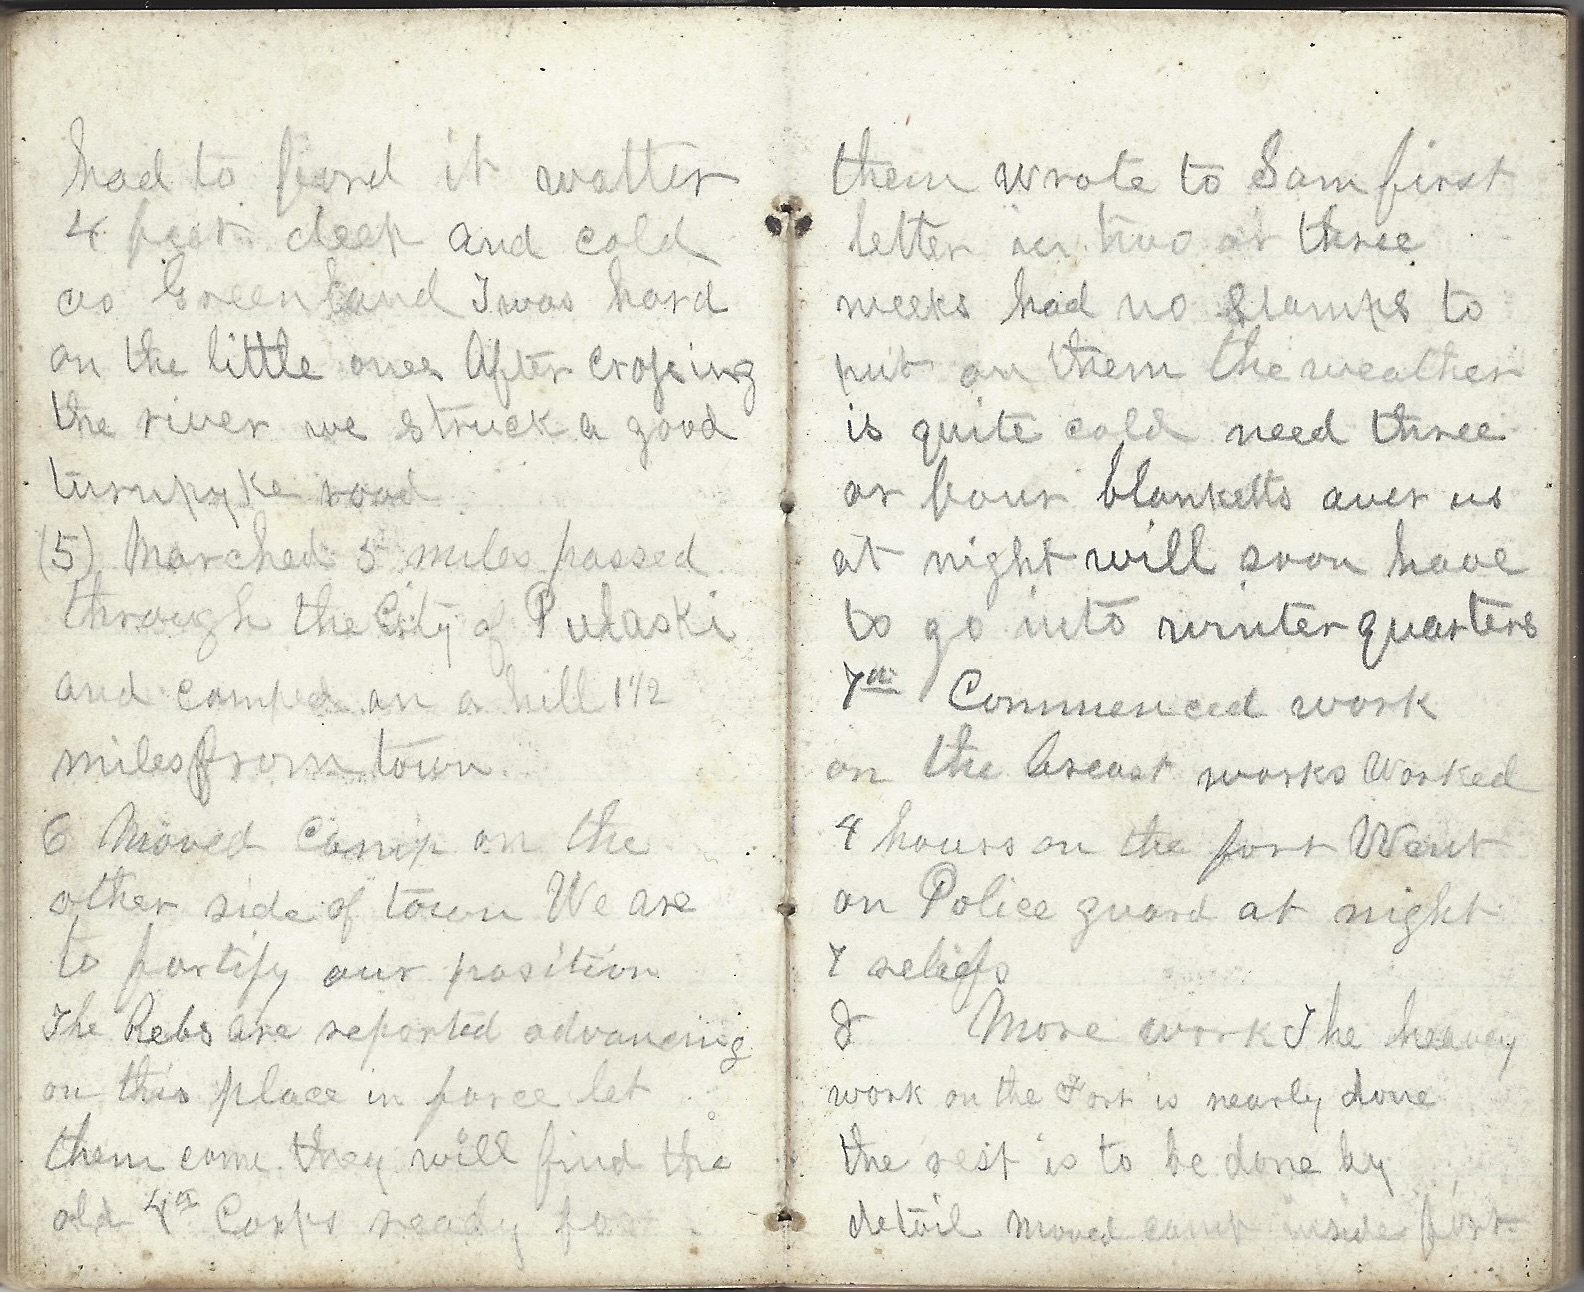 had to ford it watter
4 feet deep and cold
as Greenland I was hard
on the little ones After Crossing
the river we struck a good
turnpyke road
(5) Marched 5 miles passed
through the City of Pulaski
and camped on a hill 1 1/2
miles from town.
6 Moved Camp on the
other side of town We are
to fortify our position
The Rebs are reported advancing
on this place in force let
them come they will find the
old 4th Corps ready for
them wrote to Sam first
letter in two or three
weeks had no stamps to
put on them the weather
is quite cold need three
or four blanketts over us
at night will soon have
to go into winter quarters
7th Commenced work
on the breast works Worked
4 hours on the fort Went
on Police guard at night
7 reliefs
8 More work The heavey
work on the Fort is nearly done
the rest is to be done by
detail moved camp inside fort